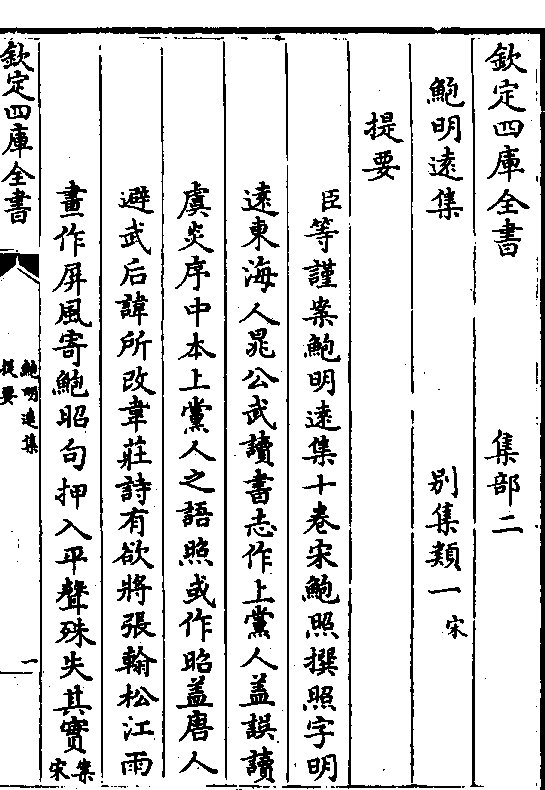 欽定四庫全書　　　　集部二
鮑明遠集　　　　　別集類一宋
提要
臣等謹案鮑明遠集十卷宋鮑照撰照字明
遠東海人晁公武讀書志作上黨人葢誤讀
虞炎序中本上黨人之語照或作昭葢唐人
避武后諱所改韋莊詩有欲將張翰松江雨
畫作屏風寄鮑昭句押入平聲殊失其實宋集
欽定四庫全書
鮑明遠集
提要
一